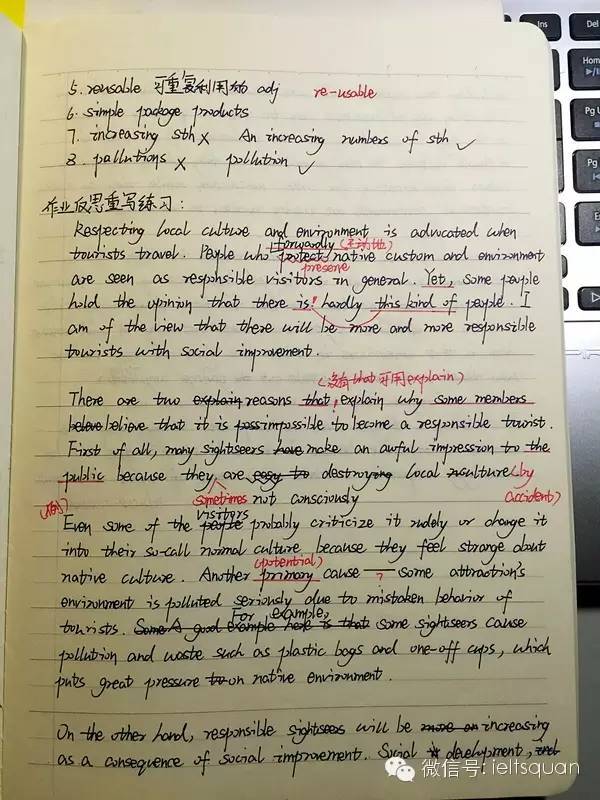 5. reusable 可重复利用的 adj re-usable
6. simple package products
7. increasing sth × An increasing numbers of sth ✓
8. pallutions × pollution ✓
作业反思重写练习:
Respecting local culture and environment is advocated when
forwardly (主动地)
tourists travel. People who protect native custom and environment
preserve
are seen as responsible visitors in general. Yet, some people
hold the opinion that there is hardly this kind of people. I
am of the view that there will be more and more responsible
tourists with social improvement.
(没有that可用explain)
There are two explain reasons that explain why some members
believe that it is impossible to become a responsible tourist.
First of all, many sightseers have make an awful impression to the
public because they are easy to destroying local culture (by
sometimes not consciously accident)
visitors
Even some of the people probably criticize it rudely or change it
into their so-call normal culture because they feel strange about
(potential)
native culture. Another primary cause ? some attraction's
environment is polluted seriously due to mistaken behavior of
For example,
tourists. Some A good example here is that some sightseers cause
pollution and waste such as plastic bags and one-off cups, which
puts great pressure to on native environment.
On the other hand, responsible sightseers will be more an increasing
as a consequence of social improvement. Social development,
微信号: ieltsquan
Ins
Del
Home
Pg U
Pg